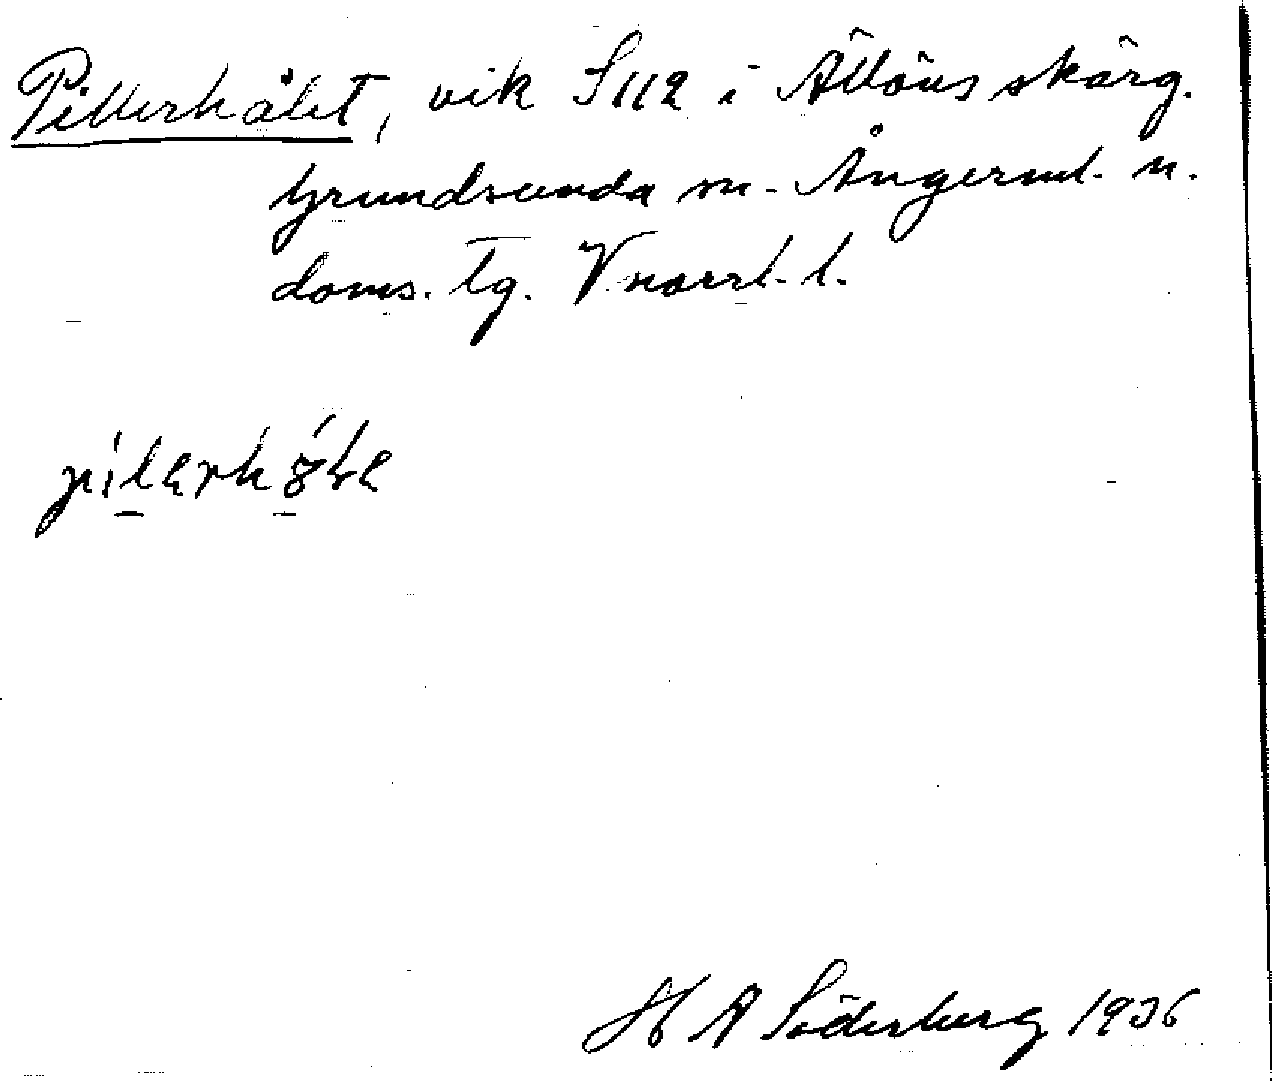 Pitterhålet, vik S 112 i Ällöns skärg.
Grundsunda sn. Ångerml. n.
doms. tg. Vnorrl. l.
H A Söderberg 1936